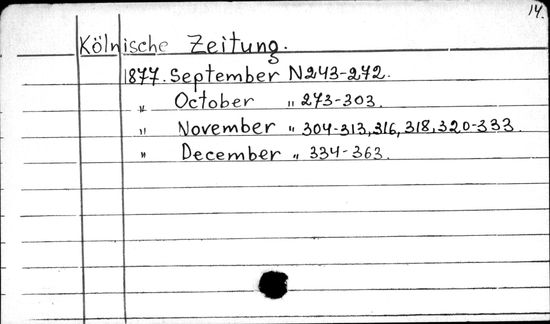 14.
Kölnische Zeitung.
1877. September N243-272.
„ October „ 273-303.
„ November „ 304-313,316,318,320-333.
„ December „ 334-363.